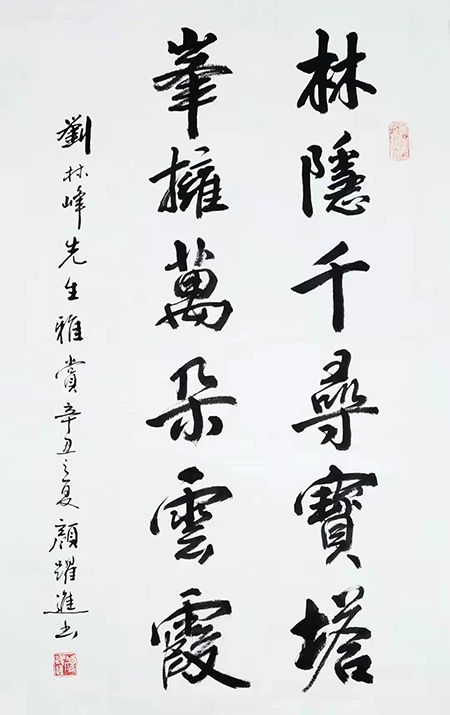 林隱千尋寶塔
峯擁萬朵雲霞
劉林峰先生雅賞辛丑之夏顏躍進书